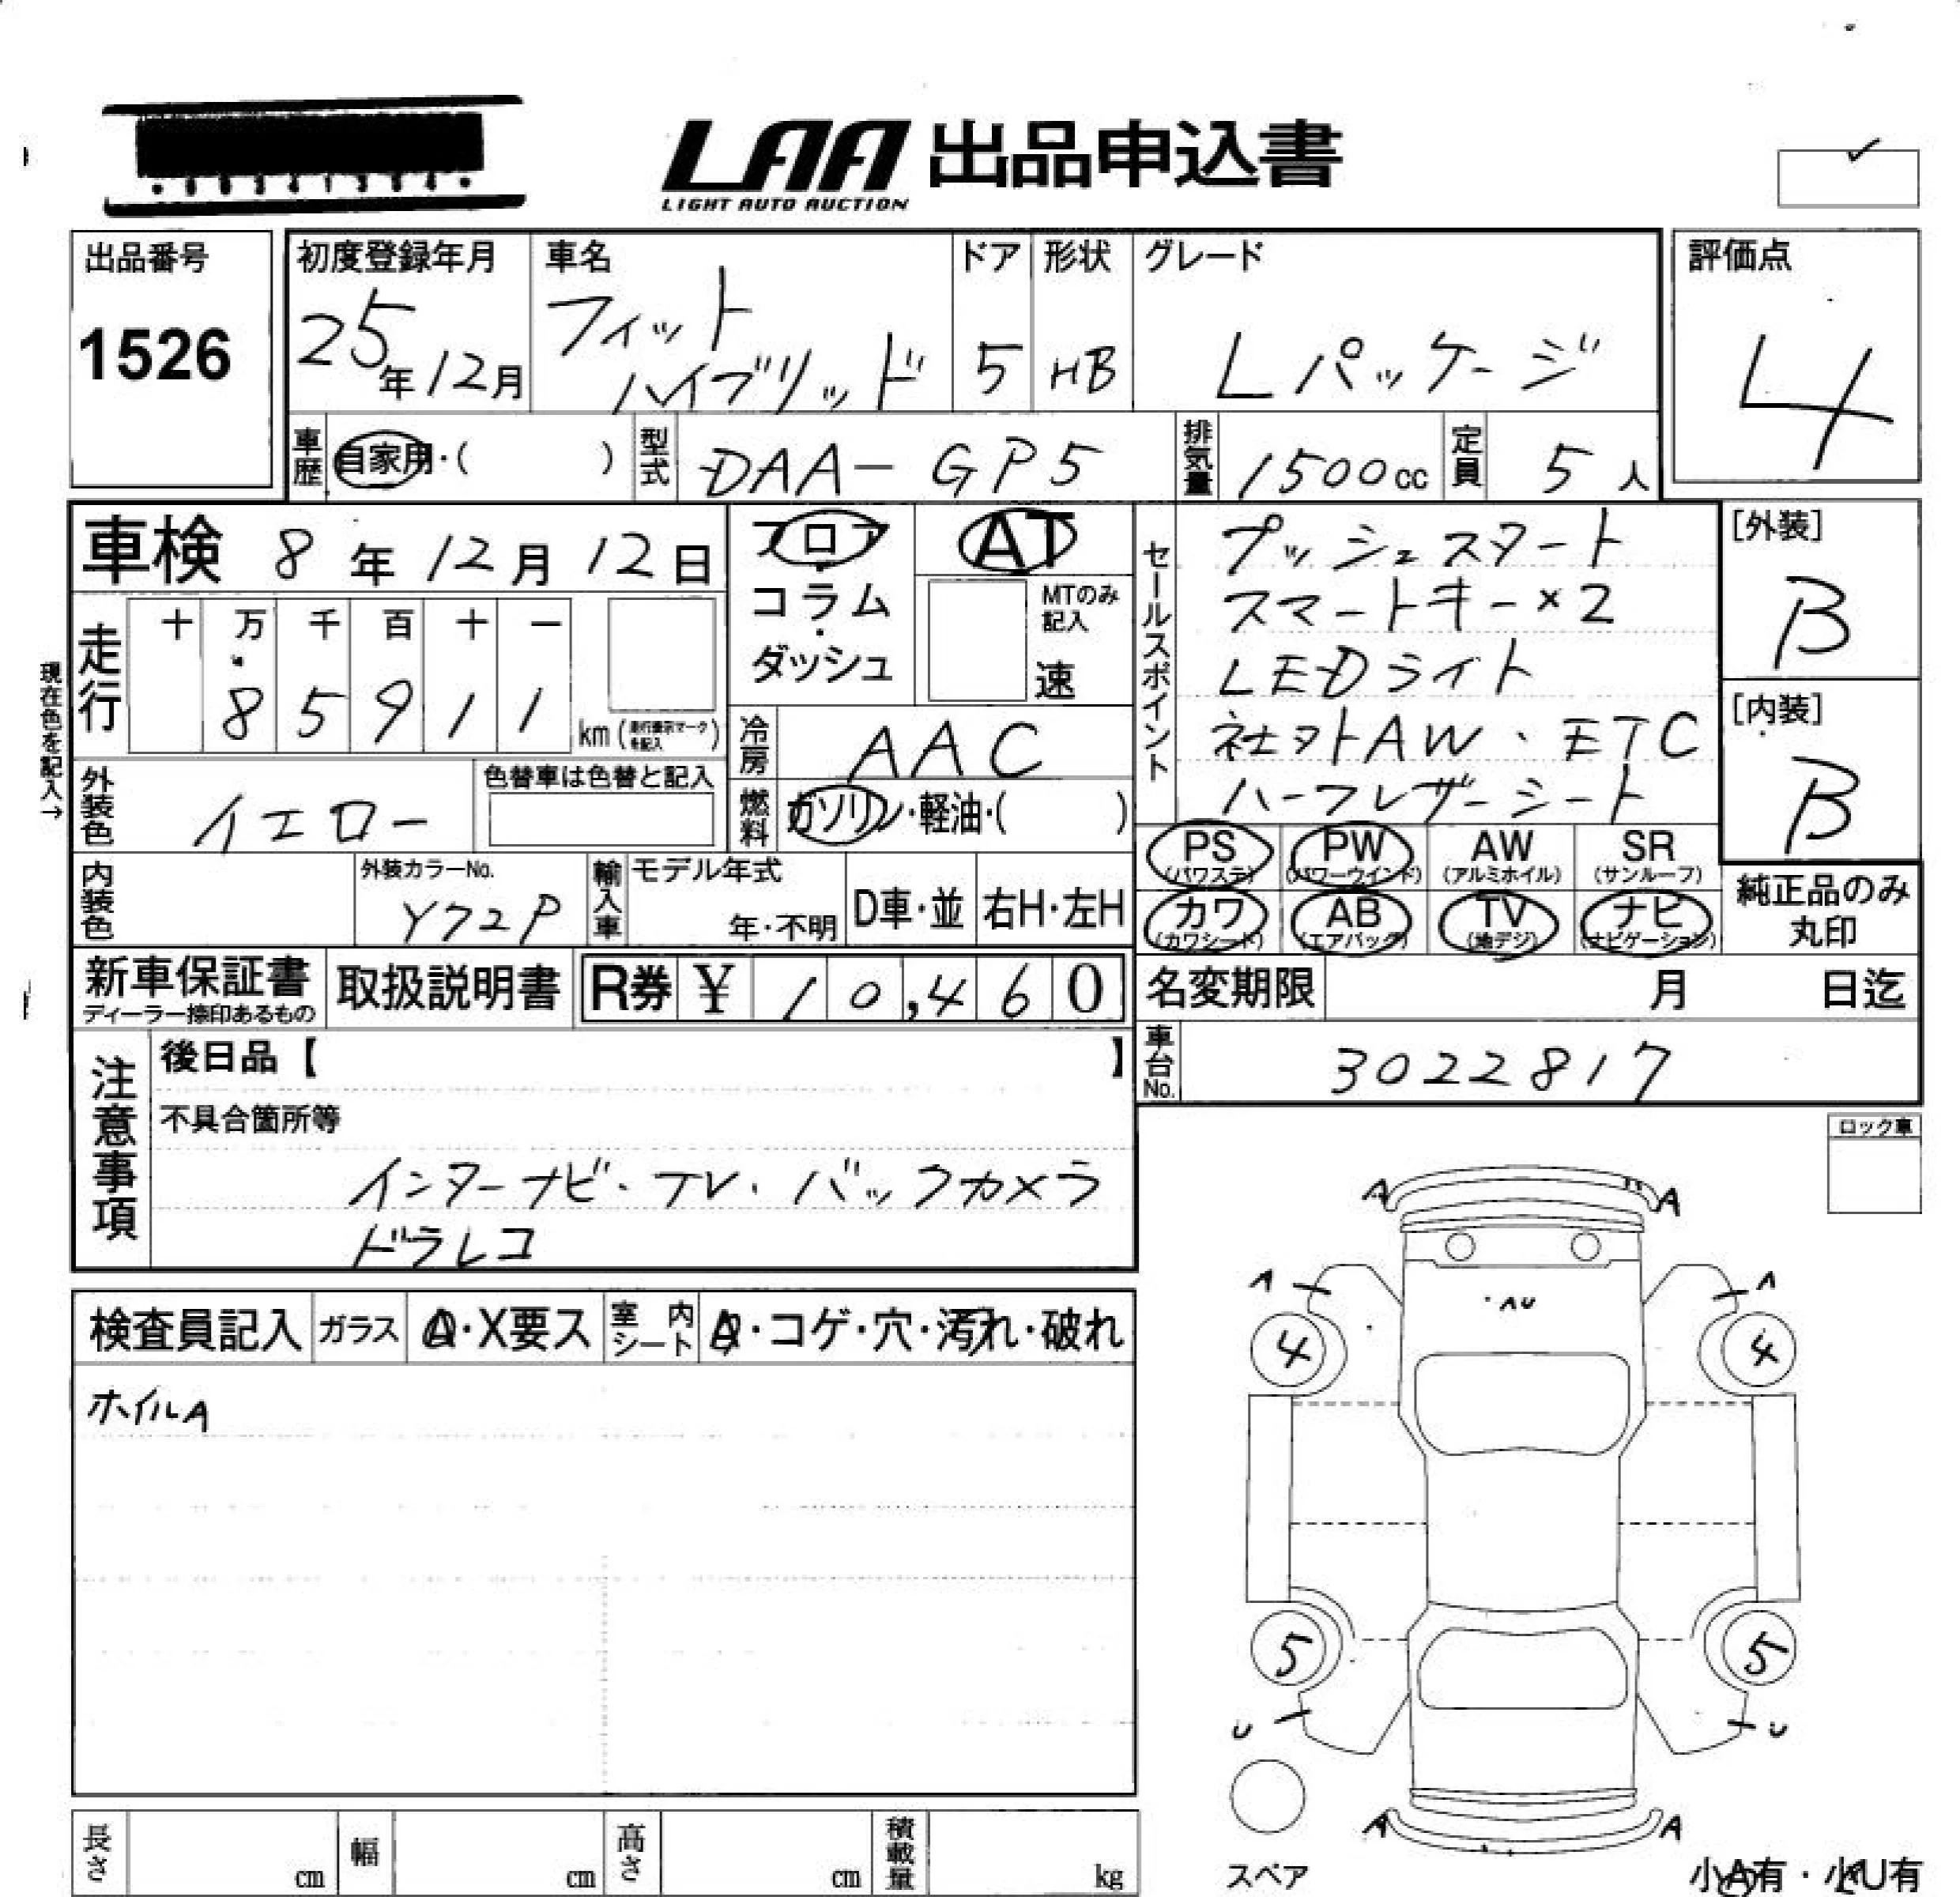 LAA 出品申込書
LIGHT AUTO AUCTION
出品番号
1526
初度登録年月
25年12月
車名
フィット
ハイブリッド
ドア
5
形状
HB
グレード
Lパッケージ
評価点
4
車歴
自家用・( )
型式
DAA-GP5
排気量
1500cc
定員
5人
車検 8年12月12日
フロア
コラム・
ダッシュ
AT
MTのみ
記入
速
現在色を記入→
走行
十 万 千 百 十 一
8 5 9 1 1
km(
)
冷房
AAC
燃料
ガソリン・軽油・( )
外装色
イエロー
色替車は色替と記入
内装色
外装カラーNo.
Y72P
輸入車
モデル年式
年・不明
D車・並
右H・左H
セールスポイント
プッシュスタート
スマートキー×2
LEDライト
社外AW・ETC
ハーフレザーシート
[外装]
B
[内装]
B
PS
(パワステ)
PW
(パワーウインド)
AW
(アルミホイル)
SR
(サンルーフ)
カワ
(カワシート)
AB
(エアバッグ)
TV
(地デジ)
ナビ
(ナビゲーション)
純正品のみ
丸印
新車保証書
ディーラー捺印あるもの
取扱説明書
R券 ¥ 10,460
名変期限 月 日迄
車台No.
3022817
注意事項
後日品【 】
不具合箇所等
インターナビ・TV・バックカメラ
ドラレコ
ロック車
検査員記入
ガラス
A・X要ス
室内シート
A・コゲ・穴・汚れ・破れ
ホイルA
A A
A A
AU
4 4
5 5
U U
A A
スペア
小A有・小U有
長さ cm
幅 cm
高さ cm
積載量 kg